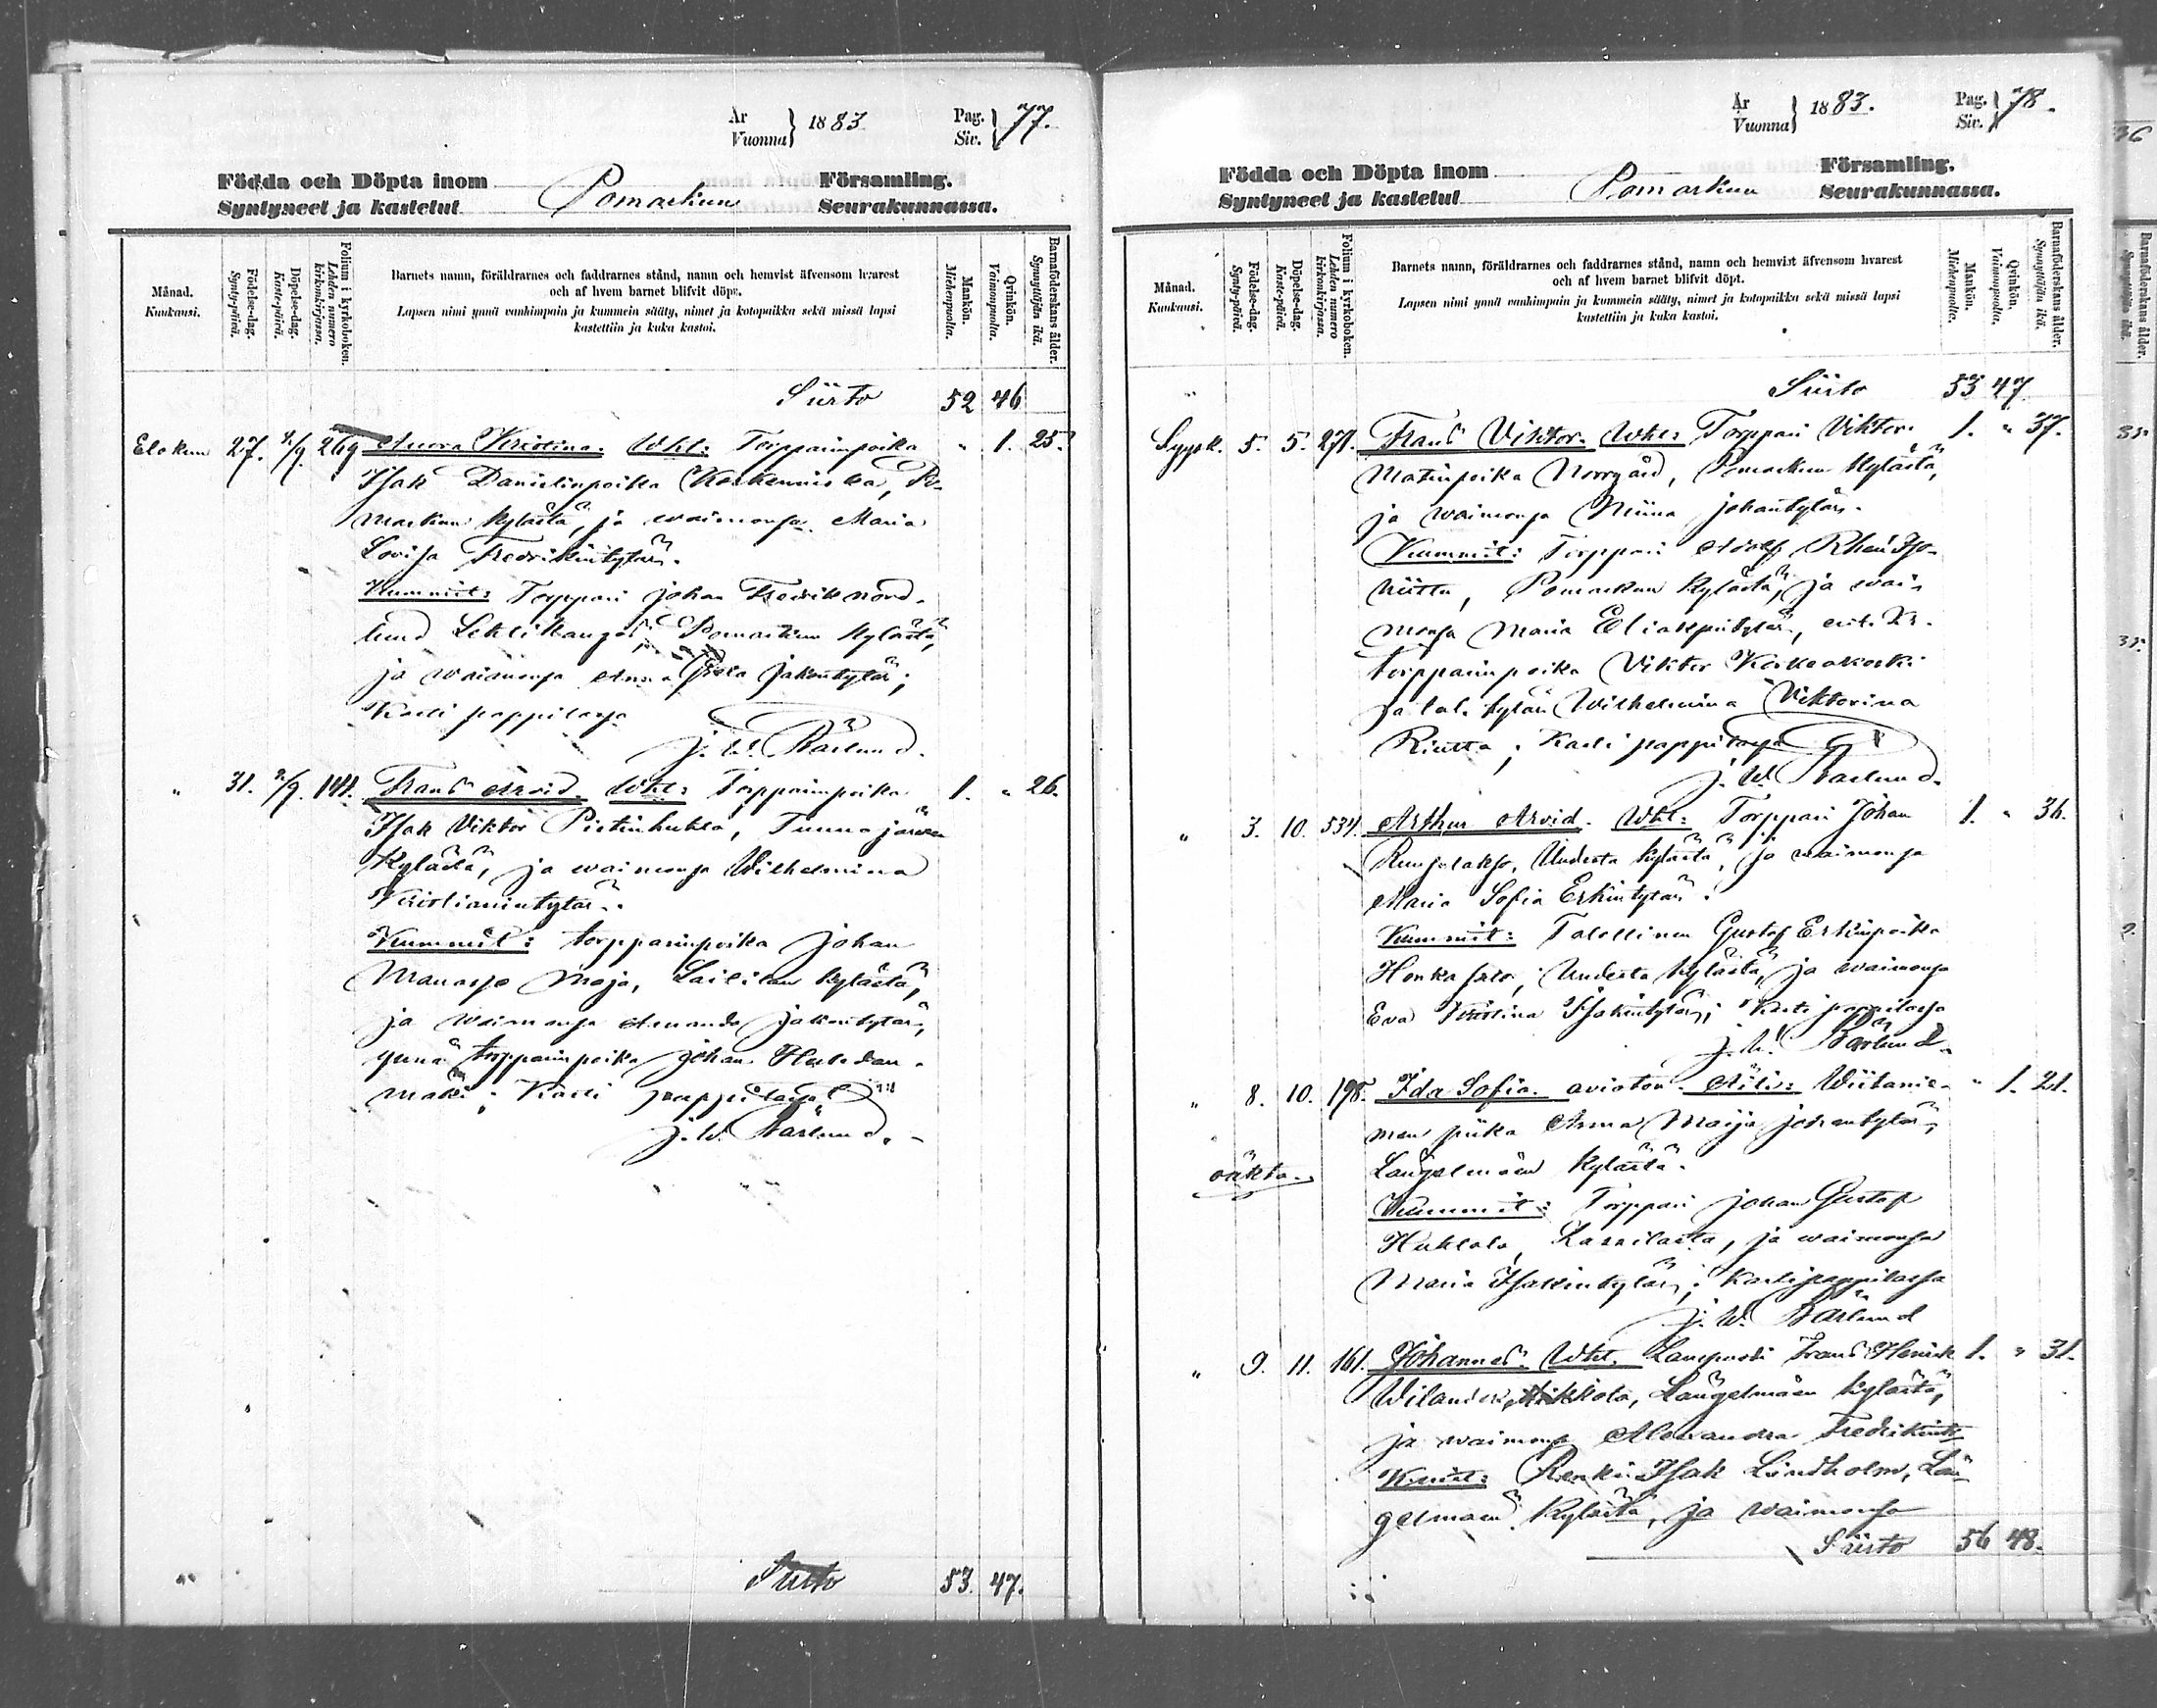 År
Vuonna } 1883
Pag.
Siv. } 77.
Födda och Döpta inom
Syntyneet ja kastetut
Pomarkun
Församling.
Seurakunnassa.
Månad.
Kuukausi.
Födelse-dag.
Synty-päivä.
Döpelse-dag.
Kaste-päivä.
Folium i kyrkoboken.
Lehden numero
kirkonkirjassa.
Barnets namn, föräldrarnes och faddrarnes stånd, namn och hemvist äfvensom hvarest
och af hvem barnet blifvit döpt.
Lapsen nimi ynnä vanhimpain ja kummein sääty, nimet ja kotopaikka sekä missä lapsi
kastettiin ja kuka kastoi.
Mankön.
Miehenpuolta.
Qvinkön.
Vaimonpuolta.
Barnaföderskans ålder.
Synnyttäjän ikä.
Siirto 52 46
Elokuu 27. 2/9. 269 Kristina. Wht: Torpparinpoika " 1. 25.
Isak Danielinpoika Po-
markun kylästä, ja waimonsa Maria
Lovisa Fredrikintytär.
Kummit: Torppari Johan Fredrik Nord-
lund Pomarkun kylästä,
ja waimonsa Anna Jakintytär;
Kasti pappilassa
J. W. Bärlund.
" 31. 2/9. 141. Frans Arvid. Wht: Torpparinpoika 1. " 26.
Isak Viktor Pietinhuhta, Tunnajärven
kylästä, ja waimonsa Wilhelmina
Kristianintytär.
Kummit: torpparinpoika Johan
Manasse Maja, Laililan kylästä,
ja waimonsa Amanda
ynnä torpparinpoika Johan
mäki; Kasti pappilassa
J. W. Bärlund.
Siirto 53. 47.
År
Vuonna } 1883.
Pag.
Siv. } 78.
Födda och Döpta inom
Syntyneet ja kastetut
Pomarkun
Församling.
Seurakunnassa.
Månad.
Kuukausi.
Födelse-dag.
Synty-päivä.
Döpelse-dag.
Kaste-päivä.
Folium i kyrkoboken.
Lehden numero
kirkonkirjassa.
Barnets namn, föräldrarnes och faddrarnes stånd, namn och hemvist äfvensom hvarest
och af hvem barnet blifvit döpt.
Lapsen nimi ynnä vanhimpain ja kummein sääty, nimet ja kotopaikka sekä missä lapsi
kastettiin ja kuka kastoi.
Mankön.
Miehenpuolta.
Qvinkön.
Vaimonpuolta.
Barnaföderskans ålder.
Synnyttäjän ikä.
" Siirto 53 47
Syysk. 5. 5. 271. Frans Viktor. Wht: Torppari Viktor 1. " 37.
Matinpoika Norrgård, Pomarkun kylästä,
ja waimonsa Miina Johantytär.
Kummit: Torppari Adolf Rhen Iso-
niittu, Pomarkun kylästä, ja wai-
monsa Maria
torpparinpoika Viktor Kiskeakoski
ja tal. tytär Wilhelmina Viktorina
Riutta; Kasti pappilassa
J. W. Bärlund.
" 3. 10. 534. Arthur Arvid. Wht: Torppari Johan 1. " 36.
kylästä, ja waimonsa
Maria Sofia Erkintytär.
Kummit: Talollinen Gustaf Erkinpoika
Honkasalo, kylästä, ja waimonsa
Eva Kristina Isakintytär; Kasti pappilassa
J. W. Bärlund.
" 8. 10. 198. Ida Sofia. avioton. Äiti: Wiitanie- " 1. 21.
men piika Anna Maija Johantytär,
oäkta. Längelmäen kylästä.
Kummit: Torppari Johan Gustaf
Huhtala, ja waimonsa
Maria Isakintytär; Kasti pappilassa
J. W. Bärlund
" 9. 11. 161. Johannes. Wht. Lampuoti Frans Henrik 1. " 31.
Wilander, Längelmäen kylästä,
ja waimonsa Alexandra
Kmit: Renki Isak Lindholm, Län-
gelmäen kylästä, ja waimonsa
Siirto 56 48.